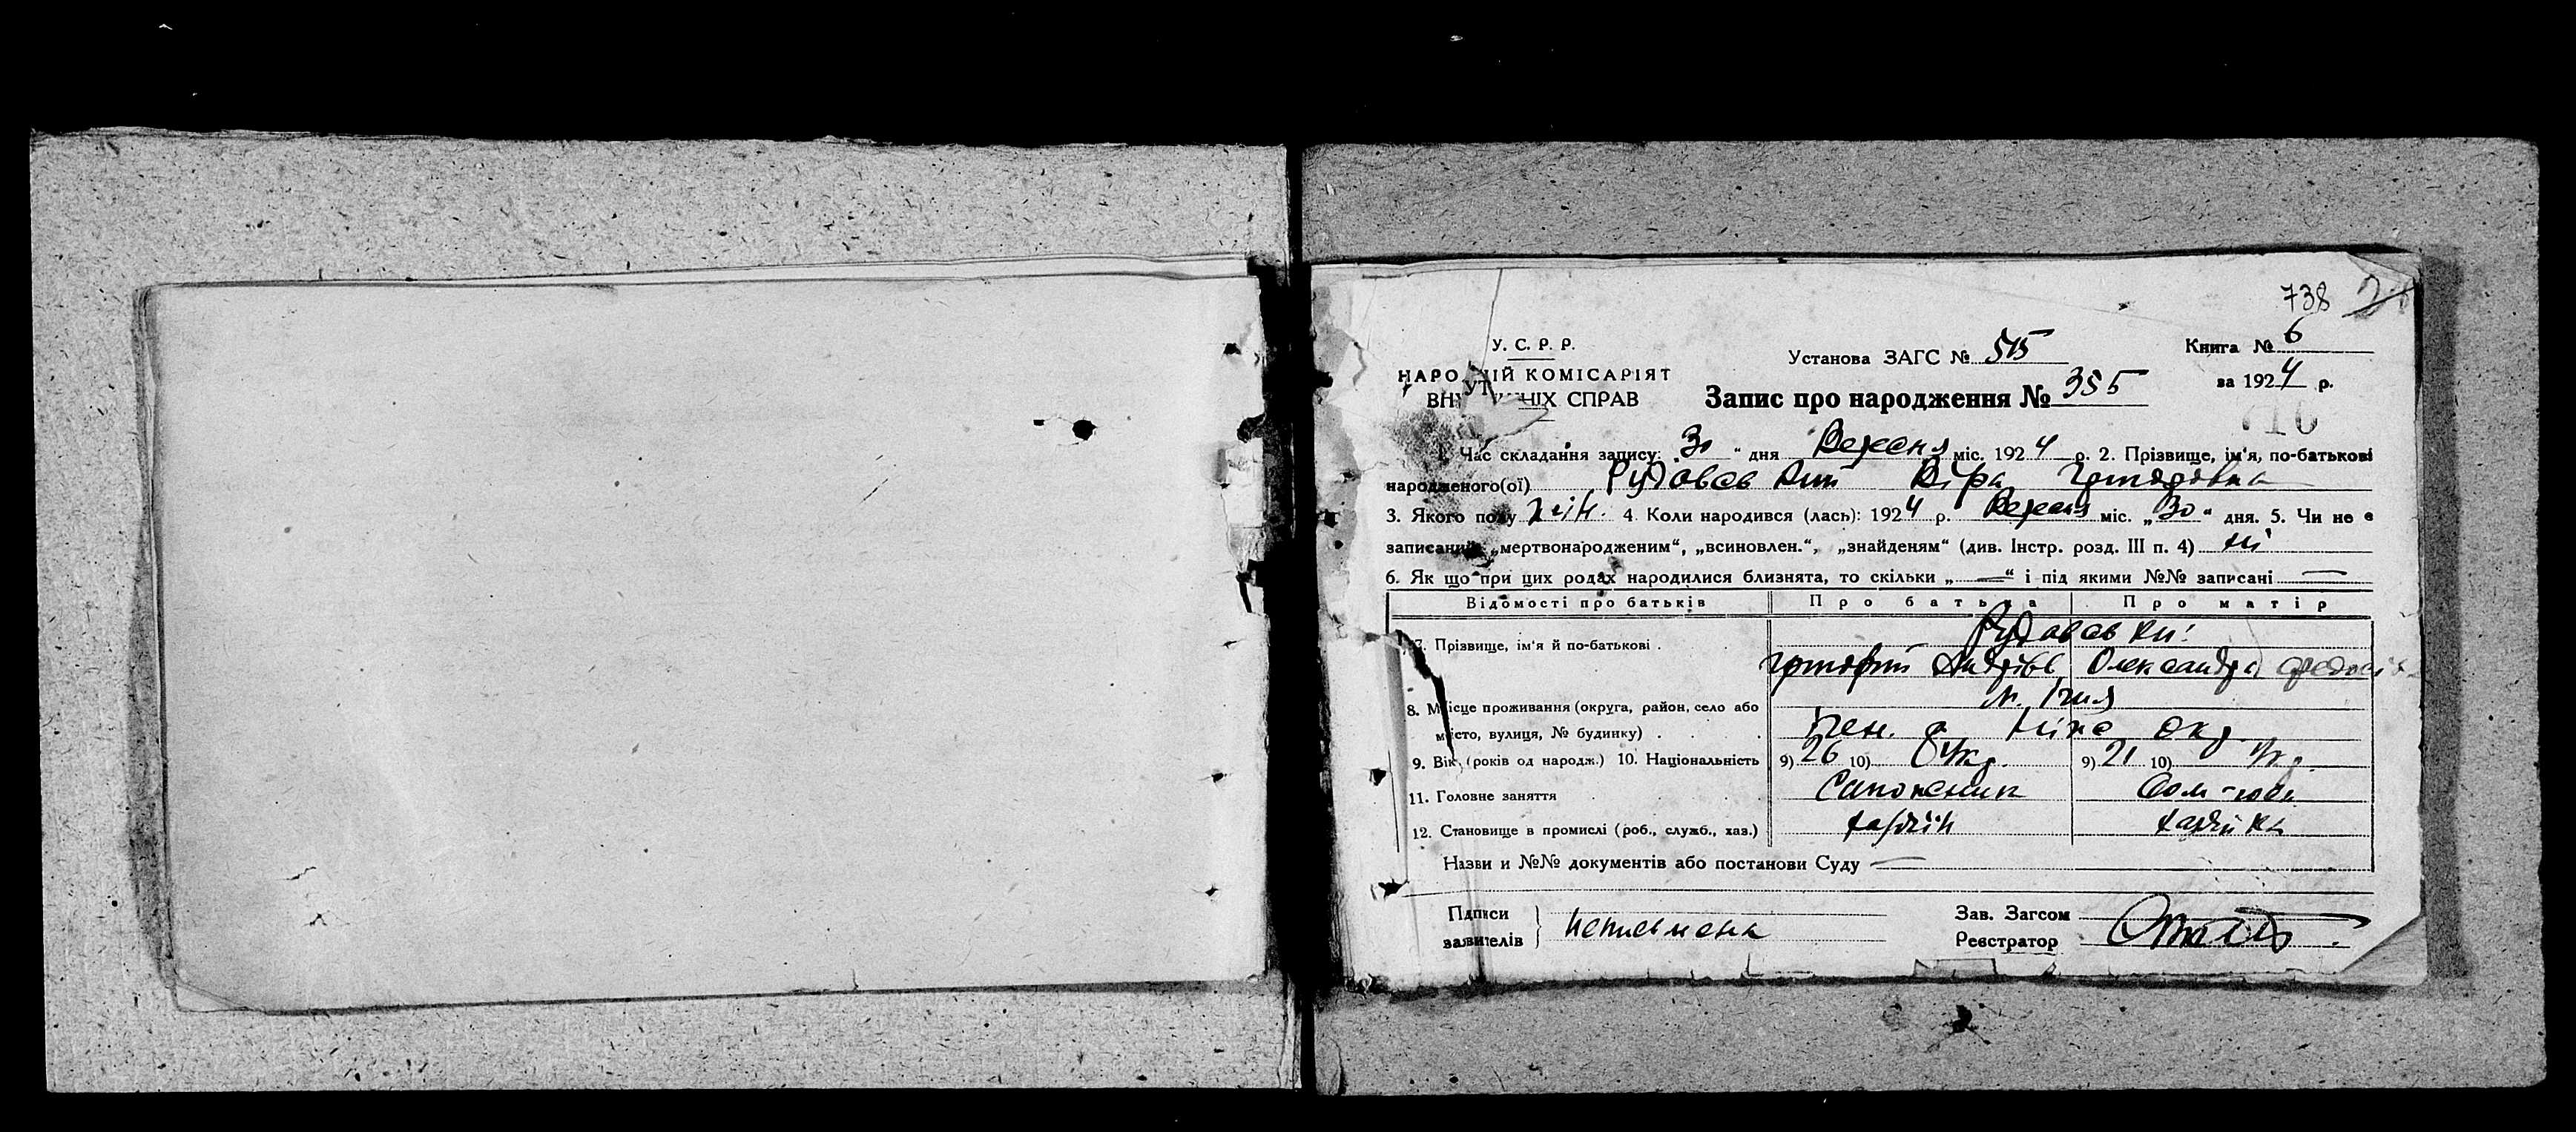 738
У. С. Р. Р.
НАРО НІЙ КОМІСАРІЯТ
ВНУТ ШНІХ СПРАВ
Установа ЗАГС № 515
Книга № 6
за 1924 р.
Запис про народження № 355
1. Час складання запису: 30 " дня Вересня міс. 1924 р. 2. Прізвище, ім'я, по-батькові
народженого(ої) Рудовський Віра Григорівна
3. Якого полу жін. 4 Коли народився (лась): 1924 р. Вересня міс. „30" дня. 5. Чи не є
записаний „мертвонародженим", „всиновлен.", „знайденям" (див. Інстр. розд. III п. 4) ні
6. Як що при цих родах народилися близнята, то скільки „—" і під якими №№ записані —
Відомості про батьків Про батька Про матір
7. Прізвище, ім'я й по-батькові . Рудовські
Григорій Андріїв Олександра
8. Місце проживання (округа, район, село або м. Ічня
місто, вулиця, № будинку) . Ічен. р Ніжо окр
9. Вік (років од народж.) 10. Національність 9) 26 10) Укр. 9) 21 10) Укр.
11. Головне заняття Сапожник Дом-
12. Становище в промислі (роб., служб., хаз.) хазяїн хазяйка
Назви и №№ документів або постанови Суду —
Підписи
заявителів } неписьмена
Зав. Загсом
Реєстратор